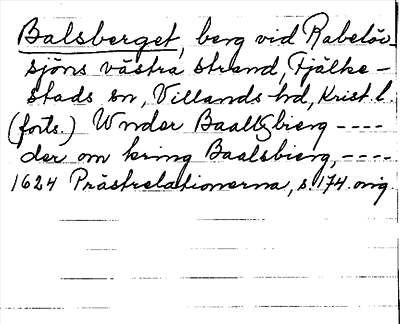 Balsberget, berg vid Rabelöv-
sjöns västra strand, Fjälke-
stads sn, Villands hd, Krist. l.
(forts.) Wnder Baallsbierg ----
der om kring Baalsbierg, ----
1624 Prästrelationerna, s. 174. orig.